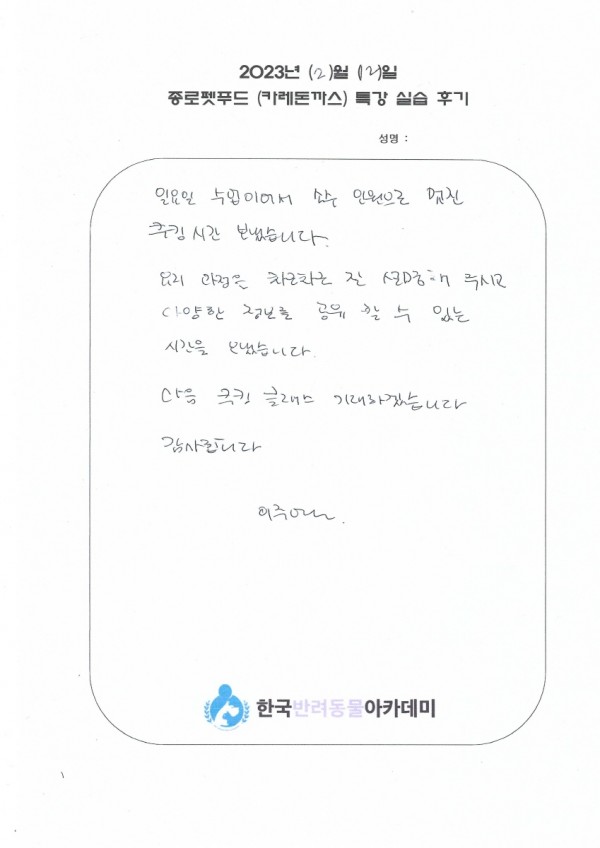 2023년 (2)월 (12)일
종로펫푸드 (카레돈까스) 특강 실습 후기
성명 :
일요일 수업이어서 소수 인원으로 멋진
쿠킹 시간 보냈습니다.
요리 과정은 차근차근 잘 설명해 주시고
다양한 정보를 공유 할 수 있는
시간을 보냈습니다.
다음 쿠킹 클래스 기대하겠습니다
감사합니다
한국반려동물아카데미